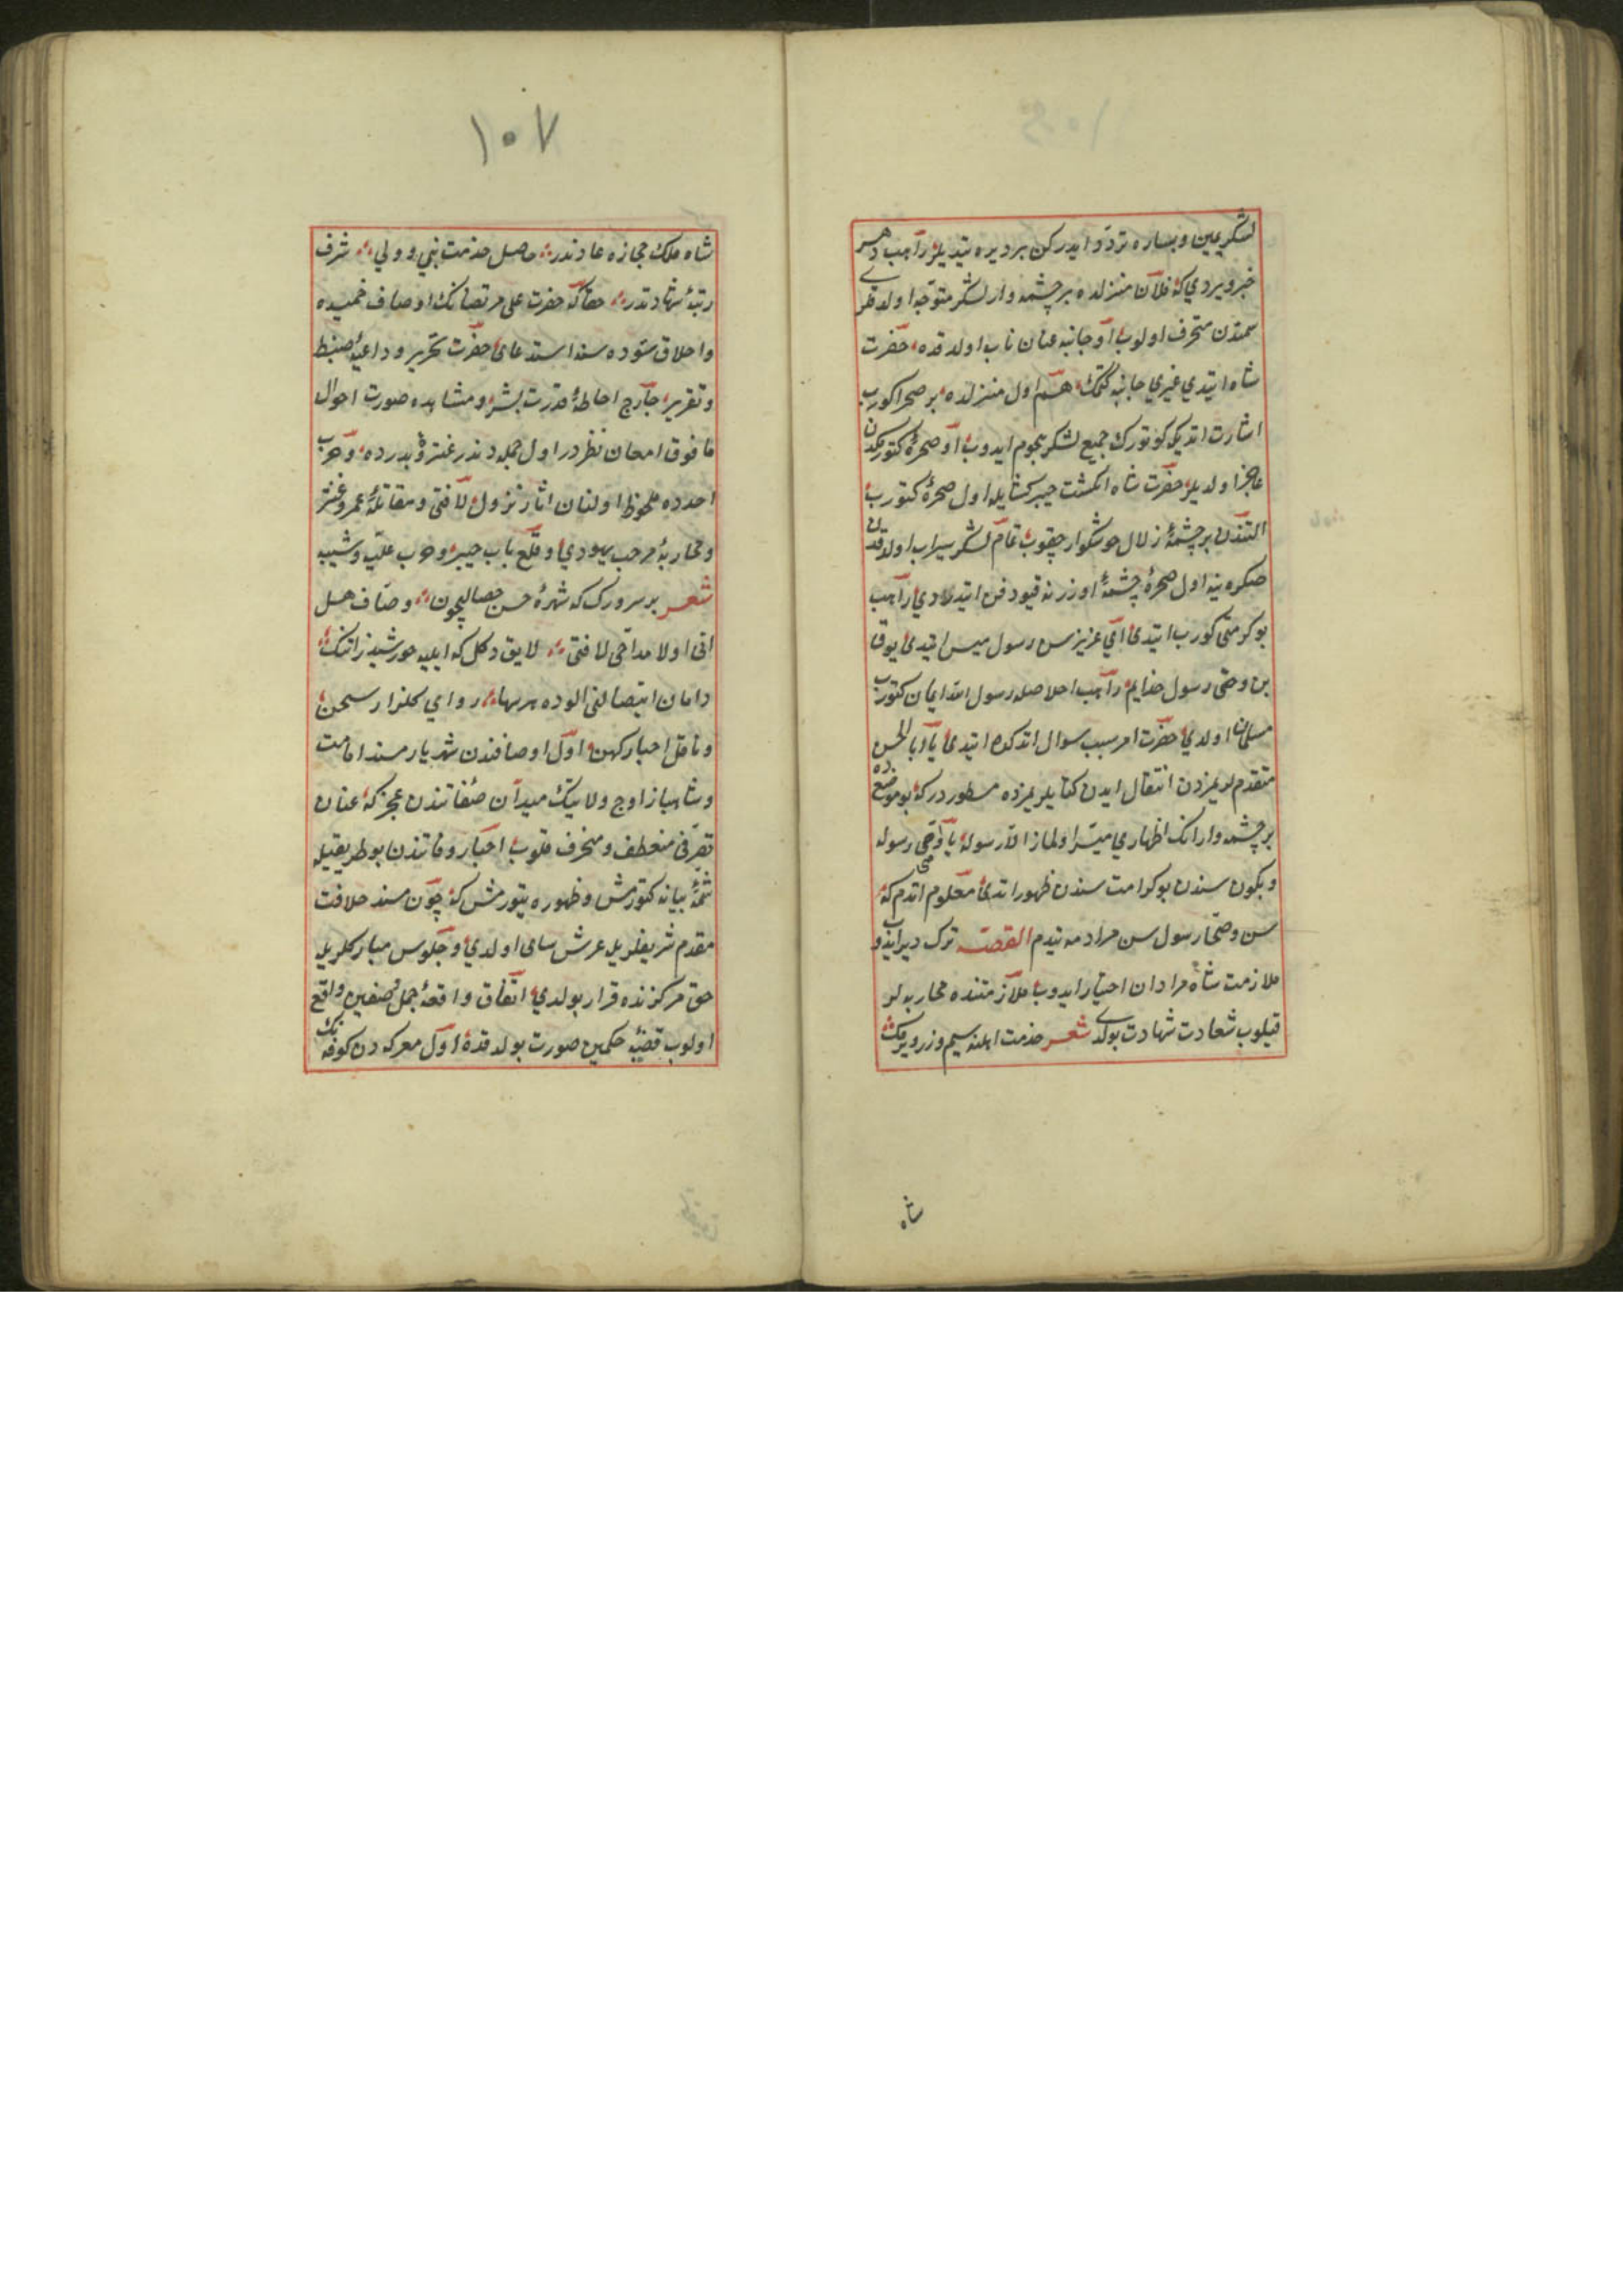 لشكر يمين ويساره تردد ايدركن بر ديره يتديلر راهب دهر
خبر ويردي كه فلان منزلده بر چشمه وار لشكر متوجه اولدقلري
سمتدن منحرف اولوب او جانبه عنان تاب اولدقده حضرت
شاه ايتدي غيري جانبه كتمك هم اول منزلده بر صحرا كورب
اشارت اتديكي كوتورك جميع لشكر هجوم ايدوب او صخره كتورمكدن
عاجز اولديلر حضرت شاه انكشت خيبر كشايله اول صخره كتورب
التندن بر چشمه زلال خوشكوار چقوب تمام لشكر سيراب اولدقدن
صكره ينه اول صخره چشمه اوزرنه قيود فن ايتديلر ديراهب
بو كرامتي كورب ايتدي اي عزيز سن رسول ميسن ايتدي يوق
بن وصي رسول خدايم راهب اخلاصله رسول الله ايمان كتورب
مسلمان اولدي حضرت امر سبب سوال اتدكده ايتدي يا ابا الحسن
متقدملريمزدن انتقال ايدن كتابلريمزده مسطوردر كه بو موضعده
بر چشمه وار انك اظهاري ميسر اولماز الا رسوله يا وصي رسوله
وبكون سندن بو كرامت سندن ظهور اتدي معلوم اتدم كه
سن وصي مختار رسول سن مراده يتدم القصه ترك دير ايدوب
ملازمت شاه مرادان اختيار ايدوب ملازمتنده محاربه لر
قيلوب سعادت شهادت بولدي شعر خدمت اهلنه سيم وزر ويرمك
شاه
١٠٧
شاه ملك مجازه عادتدر حاصل خدمت نبي وولي شرف
رتبه شهادتدر حقا كه حضرت على مرتضانك اوصاف حميده
واخلاق ستوده سنه استدعاى حضرت تحرير وداعيه ضبط
وتقرير خارج احاطه قدرت بشر ومشاهده صورت احوال
ما فوق امعان نظردر اول جمله دندر غزوه بدرده وحرب
احدده ملحوظ اولنان اثار نزول لا فتى ومقاتله عمرو عنتر
ومحاربه مرحب يهودي وقلع باب خيبر وحرب عتبه وشيبه
شعر بر سرورك كه شهره حسن خصاليچون وصاف هل
اتى اولا مداحى لا فتى لايق دكل كه ايليه خورشيد ذاتنك
دامان اتصالنى الوده هر سها راوي كلزار سخن
وناقل اخبار كهن اول اوصافندن شهريار مسند امامت
وشاهباز اوج ولايتك ميدان صفاتندن عجز كه عنان
تصرفى منعطف ومنحرف قلوب اخبار وفاتندن بو طريقيله
شمه بيانه كتورمش وظهوره يتورمش كه چون مسند خلافت
مقدم شريفلريله عرش سامى اولدي وجلوس مباركلريله
حق مركزنده قرار بولدي اتفاق واقعه جمل وصفين واقع
اولوب قضيه حكمين صورت بولدقده اول معركه دن كوفه نك